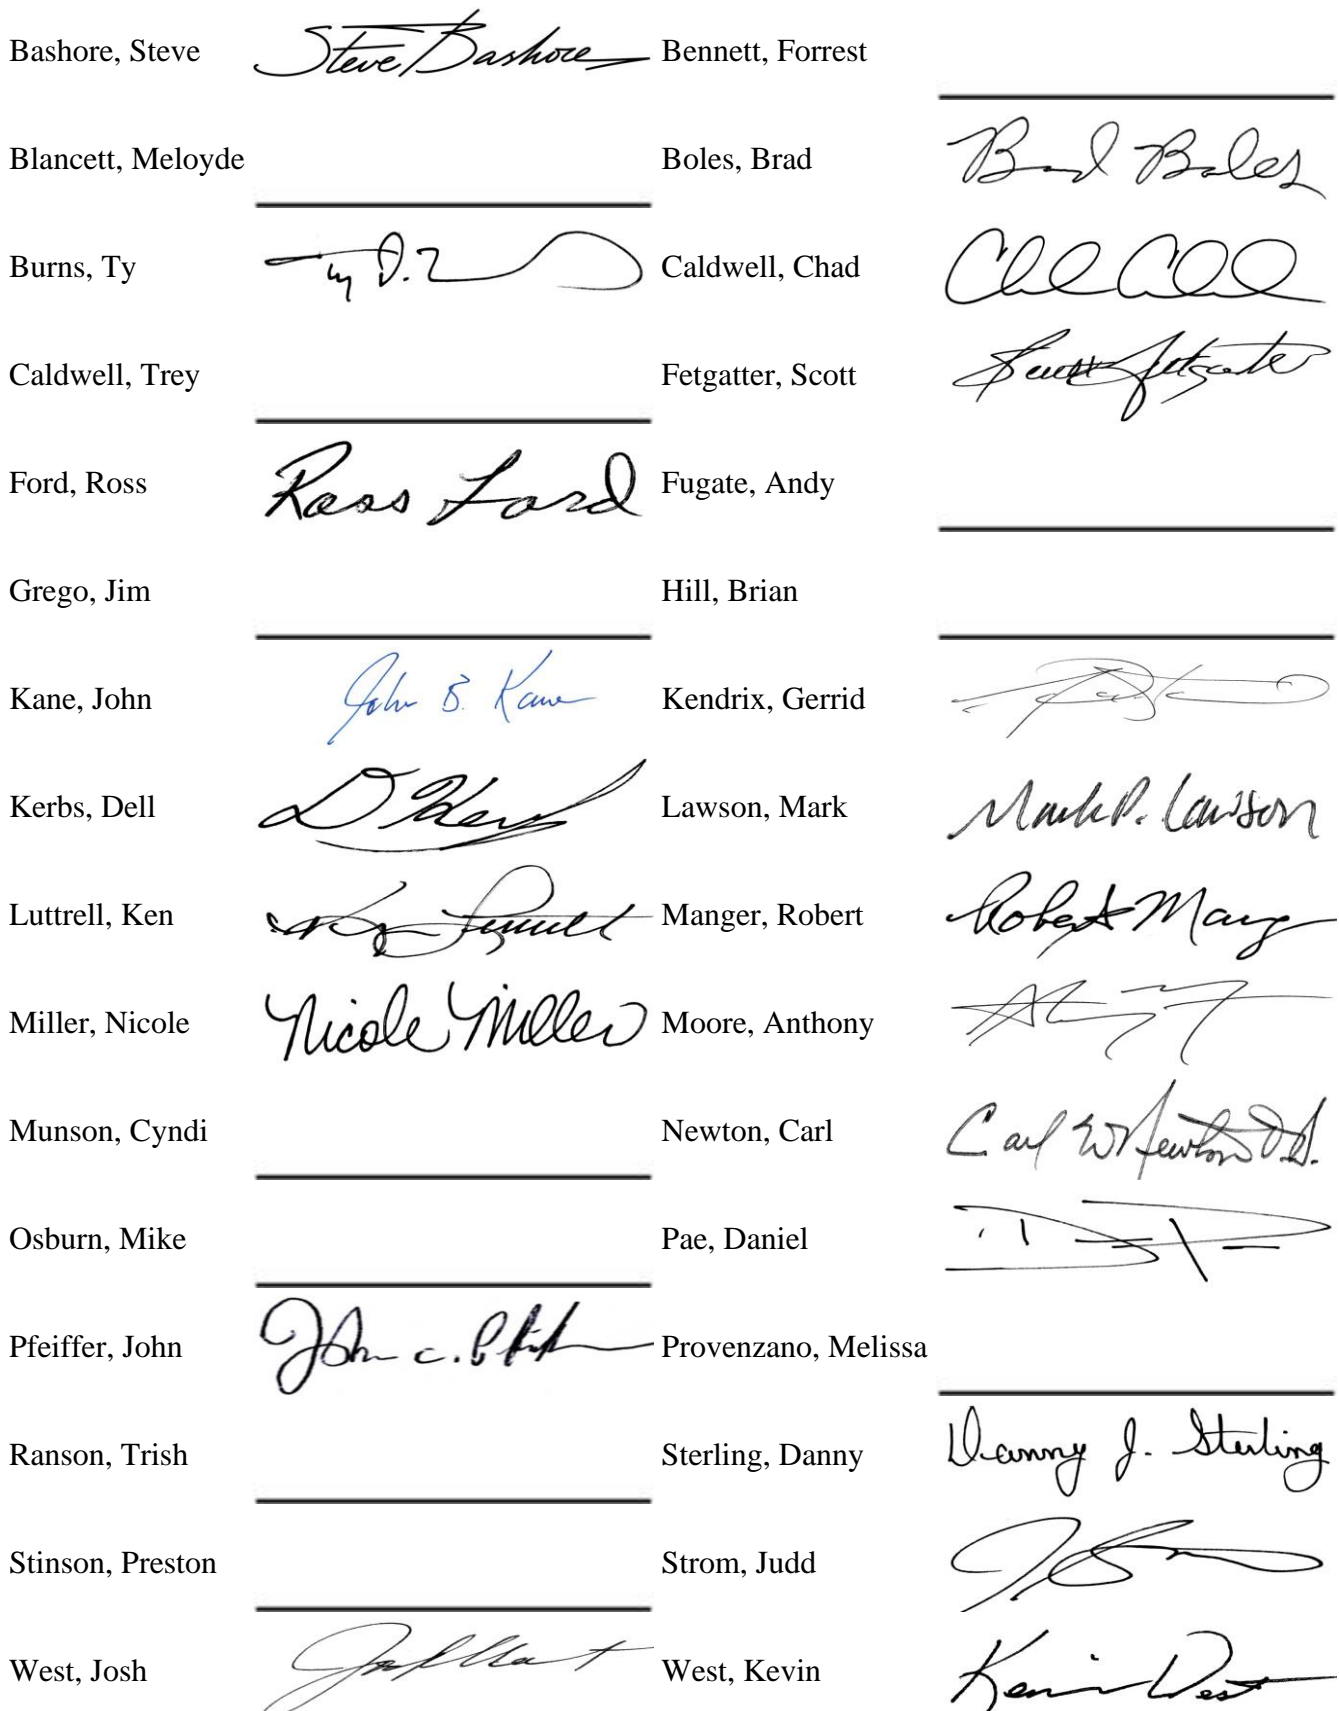 Bashore, Steve Steve Bashore Bennett, Forrest
Blancett, Meloyde Boles, Brad Brad Boles
Burns, Ty Caldwell, Chad
Caldwell, Trey Fetgatter, Scott Scott Fetgatter
Ford, Ross Ross Ford Fugate, Andy
Grego, Jim Hill, Brian
Kane, John John B. Kane Kendrix, Gerrid
Kerbs, Dell Lawson, Mark Mark P. Lawson
Luttrell, Ken Manger, Robert Robert Mang
Miller, Nicole Nicole Miller Moore, Anthony
Munson, Cyndi Newton, Carl Carl W Newton D.O.
Osburn, Mike Pae, Daniel
Pfeiffer, John John C. Provenzano, Melissa
Ranson, Trish Sterling, Danny Danny J. Sterling
Stinson, Preston Strom, Judd
West, Josh West, Kevin Kevin West